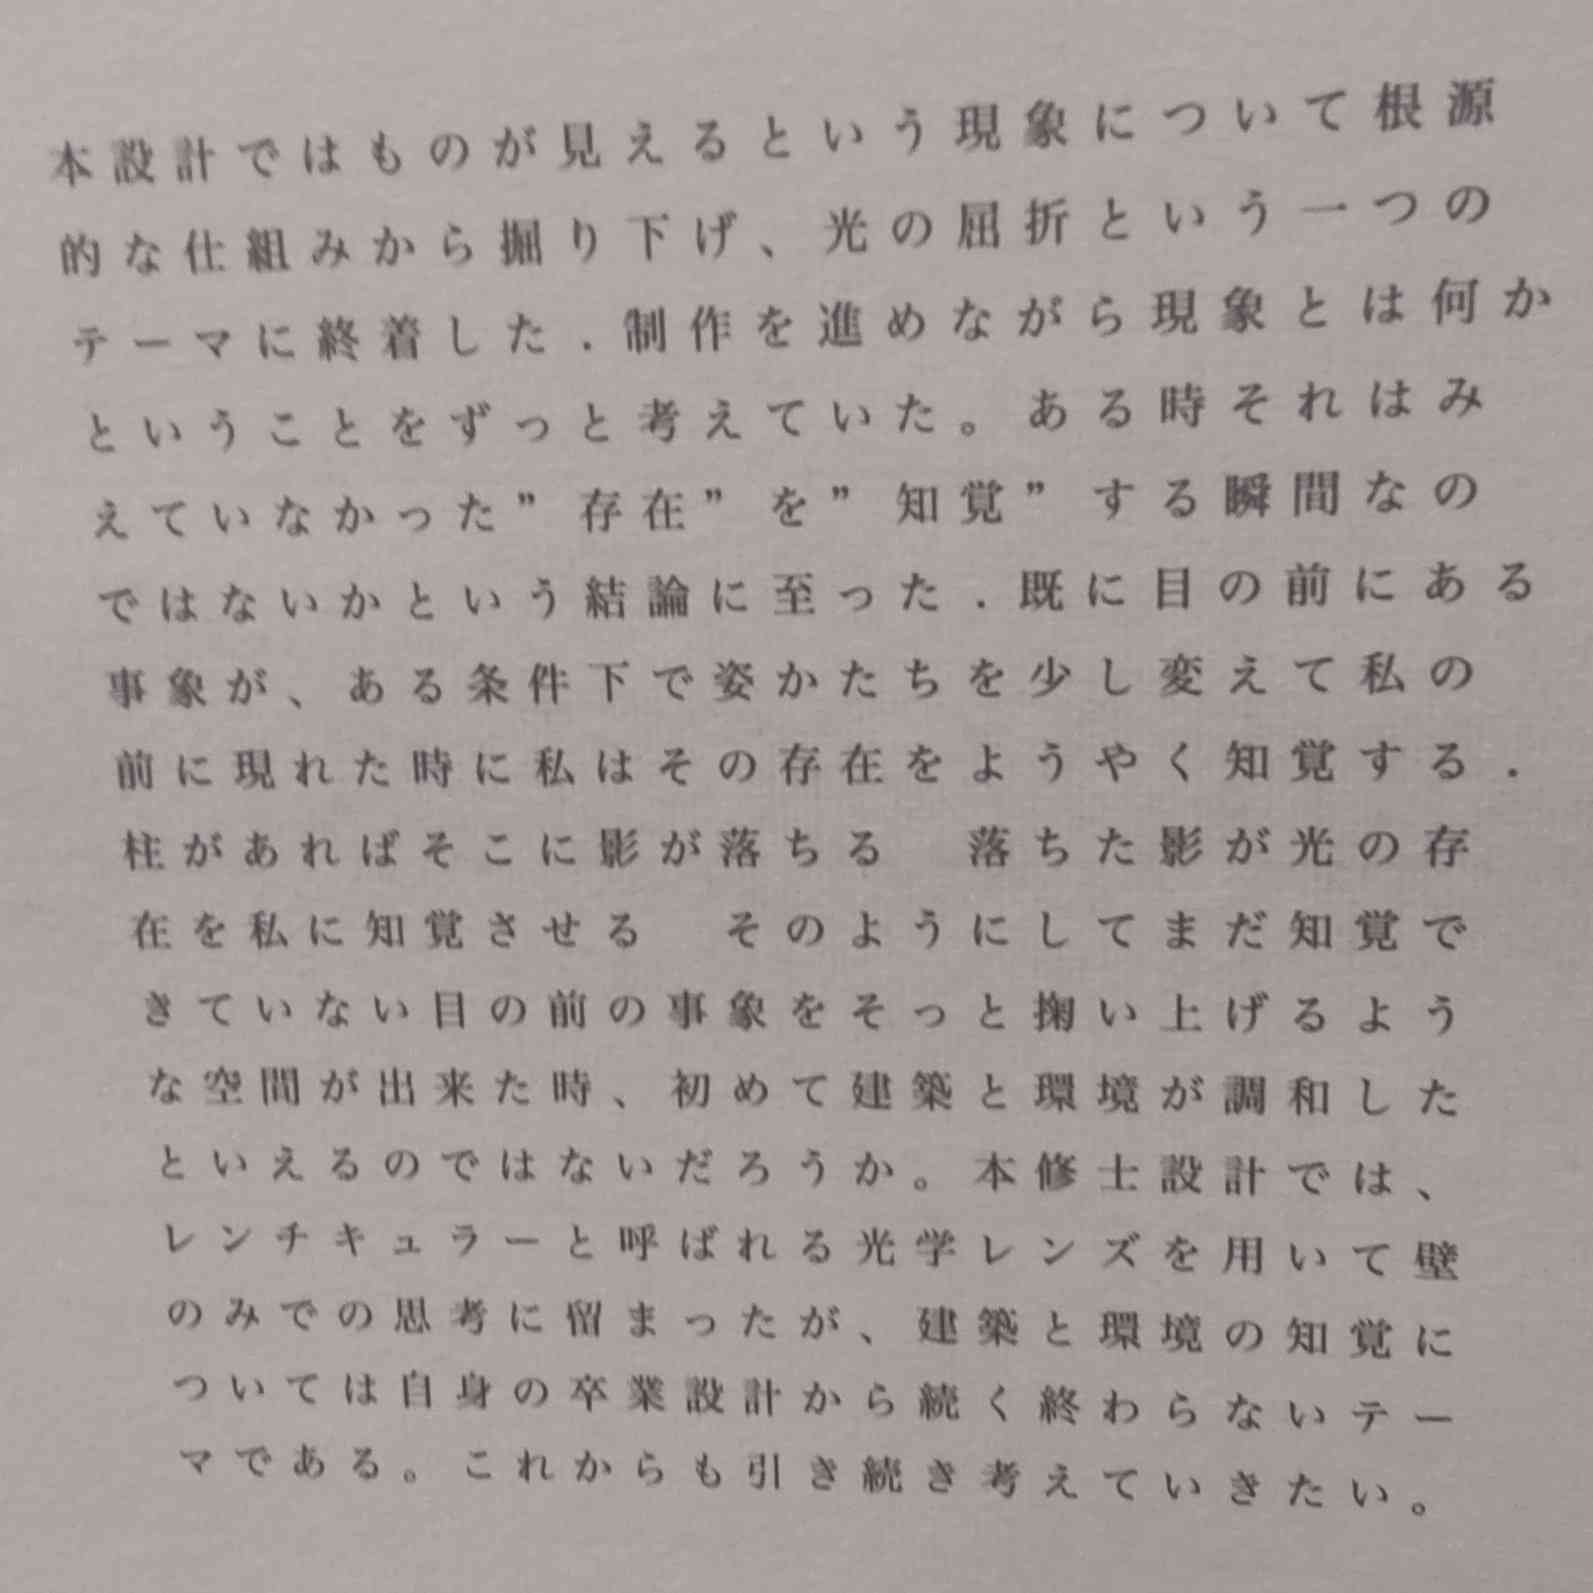 本設計ではものが見えるという現象について根源
的な仕組みから掘り下げ、光の屈折という一つの
テーマに終着した．制作を進めながら現象とは何か
ということをずっと考えていた。ある時それはみ
えていなかった”存在”を”知覚”する瞬間なの
ではないかという結論に至った．既に目の前にある
事象が、ある条件下で姿かたちを少し変えて私の
前に現れた時に私はその存在をようやく知覚する．
柱があればそこに影が落ちる　落ちた影が光の存
在を私に知覚させる　そのようにしてまだ知覚で
きていない目の前の事象をそっと掬い上げるよう
な空間が出来た時、初めて建築と環境が調和した
といえるのではないだろうか。本修士設計では、
レンチキュラーと呼ばれる光学レンズを用いて壁
のみでの思考に留まったが、建築と環境の知覚に
ついては自身の卒業設計から続く終わらないテー
マである。これからも引き続き考えていきたい。